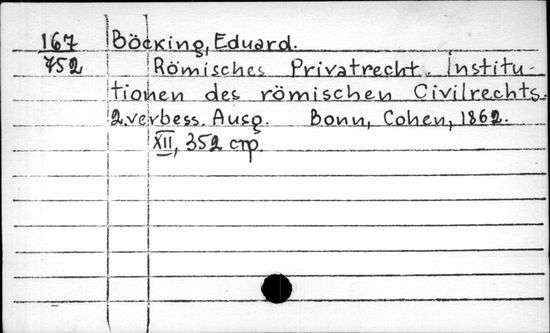 167 Böcking, Eduard.
752 Römisches Privatrecht. Institu-
tionen des römischen Civilrechts.
2.verbess. Ausg. Bonn, Cohen, 1862.
XII, 352 стр